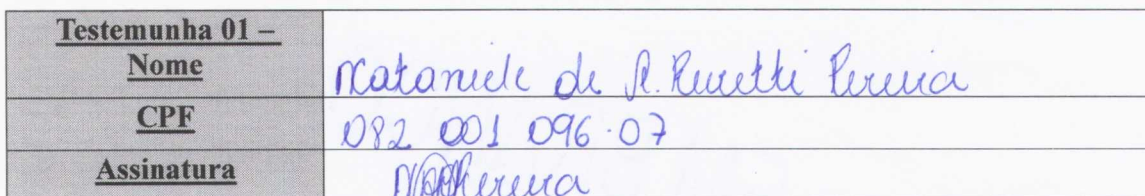 Testemunha 01 –
Nome
Nataniele de A. Pereira
CPF
082 001 096-07
Assinatura
Pereira